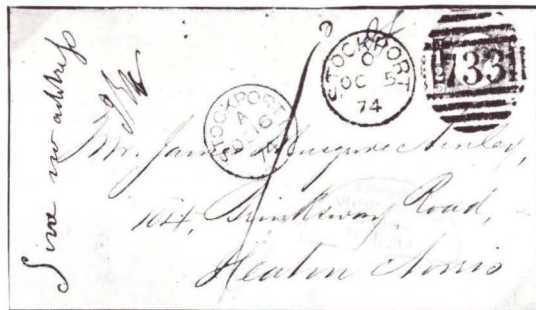 Give no address
STOCKPORT
O
OC 5
74
733
STOCKPORT
A
OC 16
74
Mr. James
104, Brinksway Road,
Heaton Norris